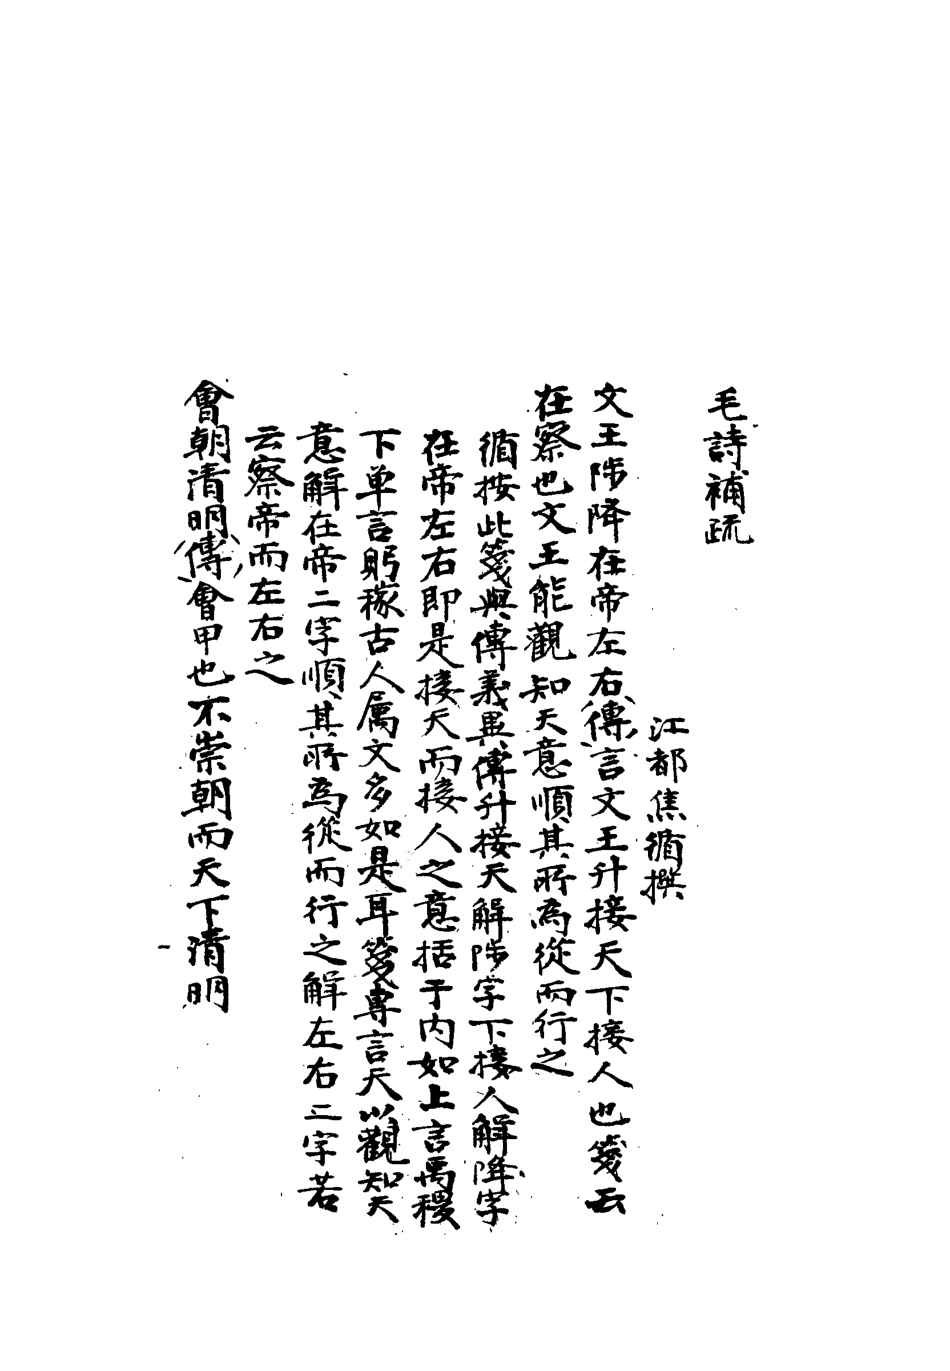 毛詩補疏
江都焦循撰
文王陟降在帝左右傳言文王升接天下接人也箋云
在察也文王能觀知天意順其所為從而行之
循按此箋與傳義異傳升接天解陟字下接人解降字
在帝左右即是接天而接人之意括于內如上言禹稷
下单言躬稼古人属文多如是耳箋專言天以觀知天
意解在帝二字順其所為從而行之解左右二字若
云察帝而左右之
會朝清明傳會甲也不崇朝而天下清明